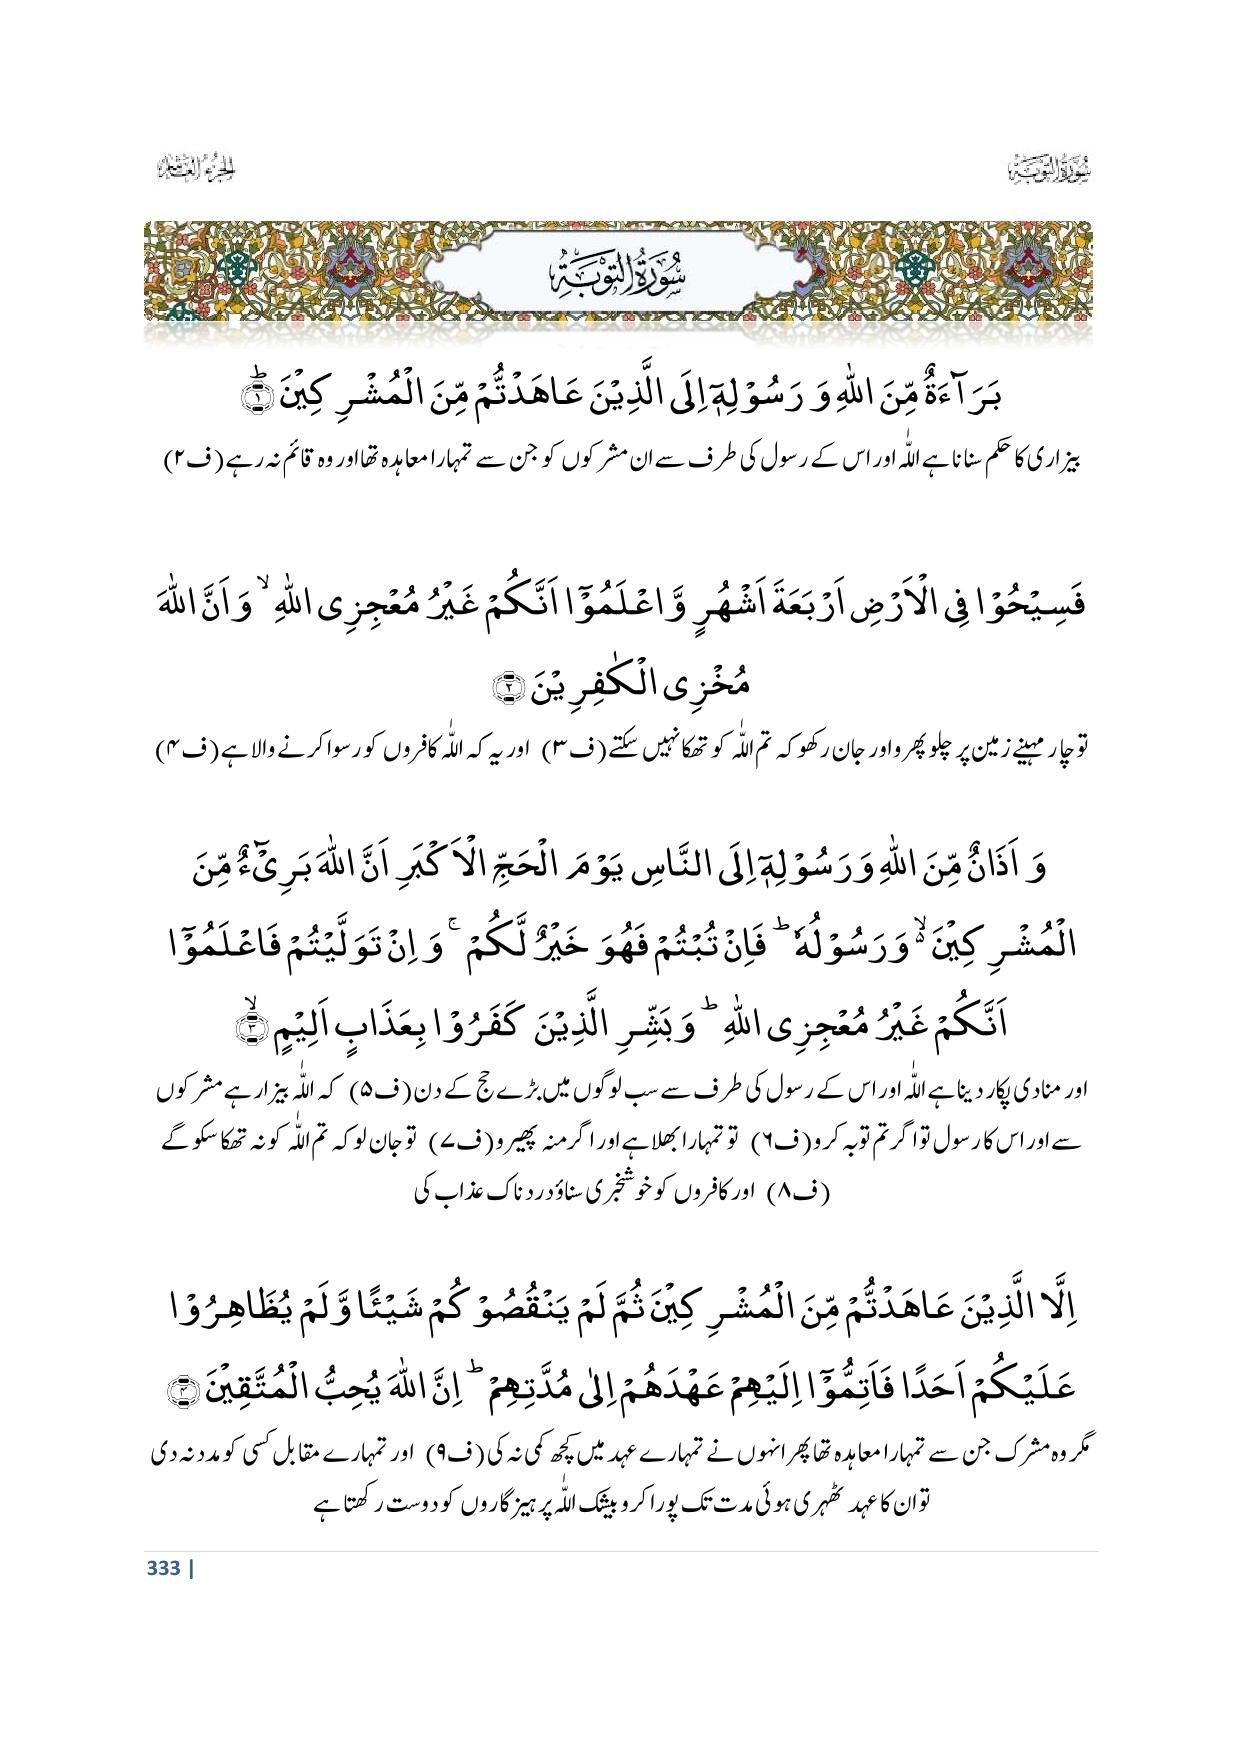 سُوْرَةُ التَّوْبَة
الجزء العاشر
سُوْرَةُ التَّوْبَةِ
بَرَآءَةٌ مِّنَ اللّٰهِ وَ رَسُوْلِهٖۤ اِلَى الَّذِیْنَ عَاهَدْتُّمْ مِّنَ الْمُشْرِكِیْنَؕ۝۱
بیزاری کا حکم سنانا ہے اللّٰہ اور اس کے رسول کی طرف سے ان مشرکوں کو جن سے تمہارا معاہدہ تھا اور وہ قائم نہ رہے (ف۲)
فَسِیْحُوْا فِی الْاَرْضِ اَرْبَعَةَ اَشْهُرٍ وَّ اعْلَمُوْۤا اَنَّكُمْ غَیْرُ مُعْجِزِی اللّٰهِۙ وَ اَنَّ اللّٰهَ
مُخْزِی الْكٰفِرِیْنَ۝۲
تو چار مہینے زمین پر چلو پھرو اور جان رکھو کہ تم اللّٰہ کو تھکا نہیں سکتے (ف۳) اور یہ کہ اللّٰہ کافروں کو رسوا کرنے والا ہے (ف۴)
وَ اَذَانٌ مِّنَ اللّٰهِ وَ رَسُوْلِهٖۤ اِلَى النَّاسِ یَوْمَ الْحَجِّ الْاَكْبَرِ اَنَّ اللّٰهَ بَرِیْٓءٌ مِّنَ
الْمُشْرِكِیْنَ ۙ۬ وَ رَسُوْلُهٗؕ فَاِنْ تُبْتُمْ فَهُوَ خَیْرٌ لَّكُمْۚ وَ اِنْ تَوَلَّیْتُمْ فَاعْلَمُوْۤا
اَنَّكُمْ غَیْرُ مُعْجِزِی اللّٰهِؕ وَ بَشِّرِ الَّذِیْنَ كَفَرُوْا بِعَذَابٍ اَلِیْمٍۙ۝۳
اور منادی پکار دینا ہے اللّٰہ اور اس کے رسول کی طرف سے سب لوگوں میں بڑے حج کے دن (ف۵) کہ اللّٰہ بیزار ہے مشرکوں
سے اور اس کا رسول تو اگر تم توبہ کرو (ف۶) تو تمہارا بھلا ہے اور اگر منہ پھیرو (ف۷) تو جان لو کہ تم اللّٰہ کو نہ تھکا سکو گے
(ف۸) اور کافروں کو خوشخبری سناؤ دردناک عذاب کی
اِلَّا الَّذِیْنَ عَاهَدْتُّمْ مِّنَ الْمُشْرِكِیْنَ ثُمَّ لَمْ یَنْقُصُوْكُمْ شَیْـًٔا وَّ لَمْ یُظَاهِرُوْا
عَلَیْكُمْ اَحَدًا فَاَتِمُّوْۤا اِلَیْهِمْ عَهْدَهُمْ اِلٰى مُدَّتِهِمْؕ اِنَّ اللّٰهَ یُحِبُّ الْمُتَّقِیْنَ۝۴
مگر وہ مشرک جن سے تمہارا معاہدہ تھا پھر انہوں نے تمہارے عہد میں کچھ کمی نہ کی (ف۹) اور تمہارے مقابل کسی کو مدد نہ دی
تو ان کا عہد ٹھہری ہوئی مدت تک پورا کرو بیشک اللّٰہ پرہیزگاروں کو دوست رکھتا ہے
333 |